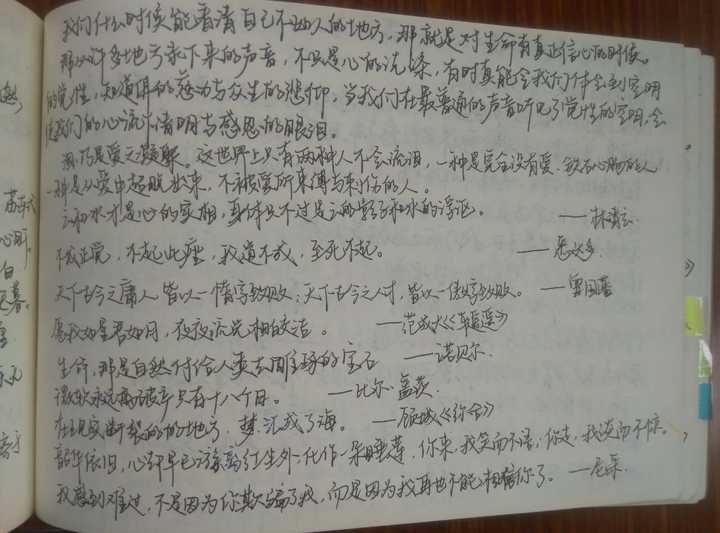 我们什么时候能看清自己不如人的地方，那就是对生命有真正信心的时候。
那从许多地方录下来的声音，不只是心的洗涤，有时真能令我们体会到空明
的觉性，知道佛的慈切与众生的悲仰，当我们在最普通的声音听见了觉性的空明，会
使我们的心流下清明与感恩的眼泪。
泪乃是爱之凝聚。这世界上只有两种人不会流泪，一种是完全没有爱、铁石心肠的人
一种是从爱中超脱出来，不被爱所束缚与刺伤的人。
云和水才是心的实相，身体只不过是云的影子和水的浮沤。 ——林清玄
不成正觉，不起此座，我道不成，至死不起。 ——悉达多
天下古今之庸人，皆以一惰字致败；天下古今之人才，皆以一傲字致败。 ——曾国藩
愿我如星君如月，夜夜流光相皎洁。 ——范成大《车遥遥》
生命，那是自然付给人类去雕琢的宝石 ——诺贝尔
微软永远离破产只有十八个月。 ——比尔·盖茨
在现实断裂的地方，梦，汇成了海。 ——顾城《你会》
韶华依旧，心轩早已游离红尘外 化作一朵睡莲，你来，我笑而不语；你走，我淡而不惊。
我感到难过，不是因为你欺骗了我，而是因为我再也不能相信你了。 ——尼采